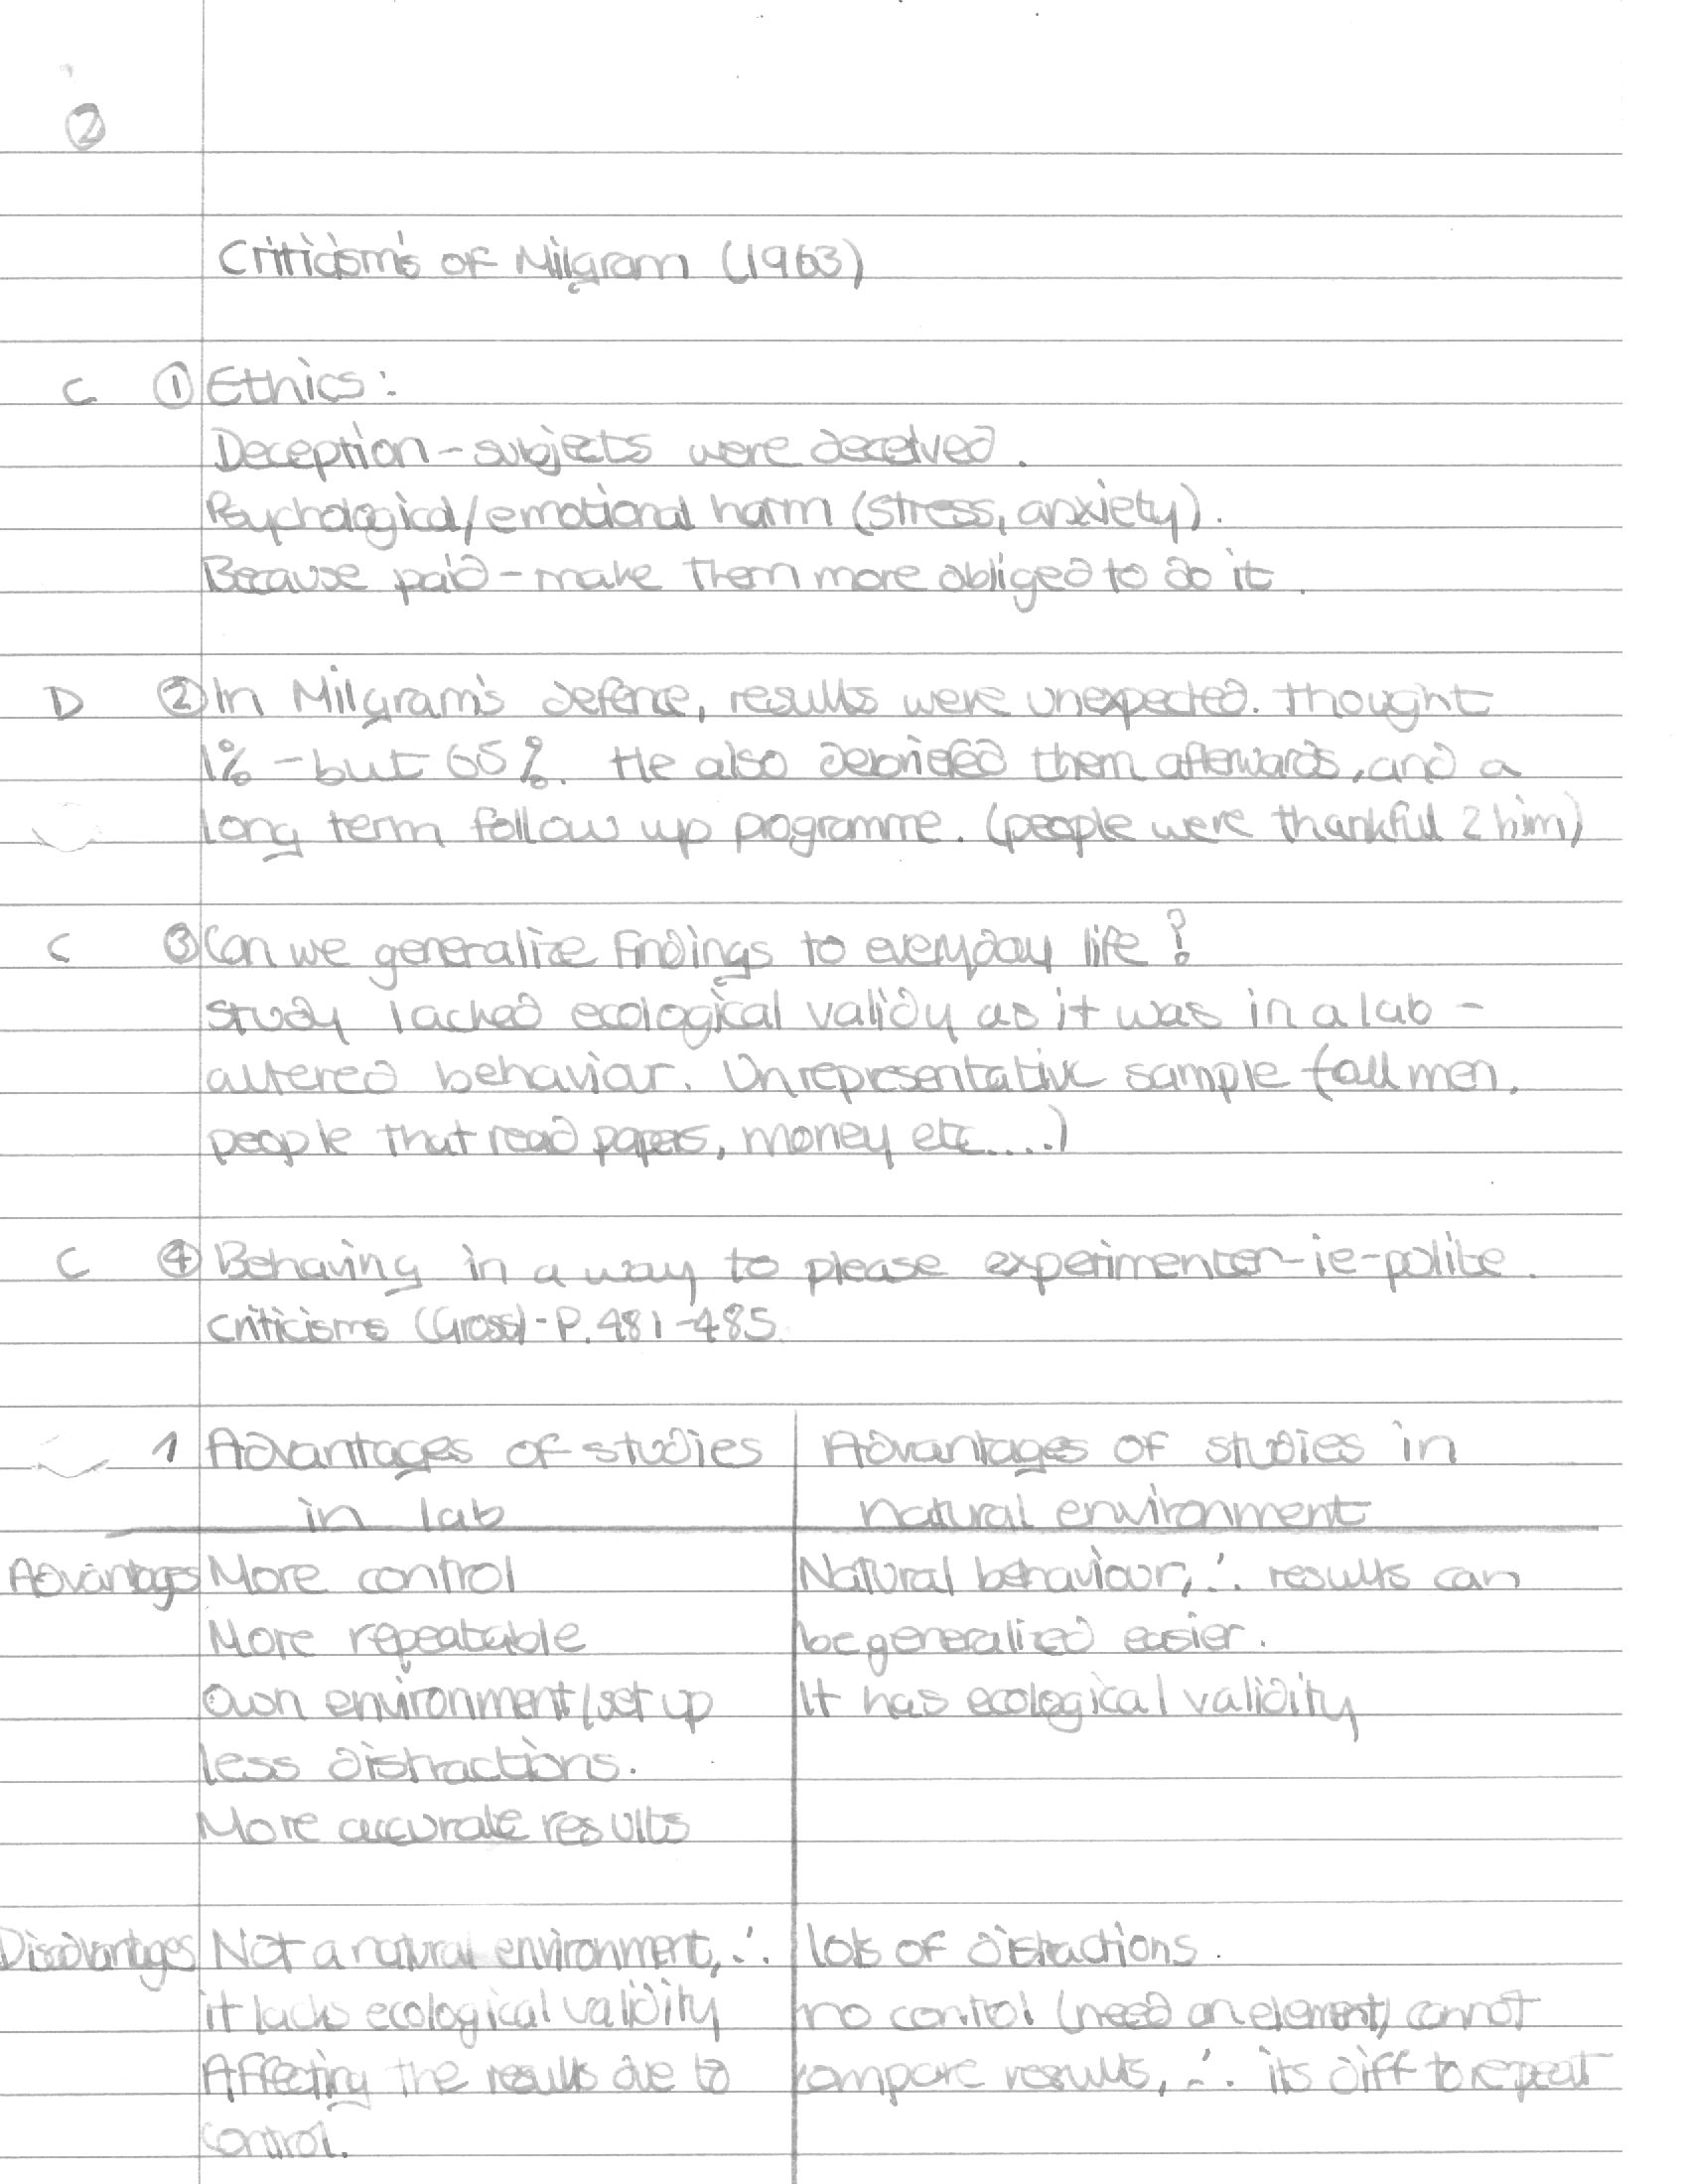 ②
Criticism's of Milgram (1963)
C ① Ethics:
Deception - subjects were deceived.
Psychological/emotional harm (stress, anxiety).
Because paid - make them more obliged to do it.
D ② In Milgram's defence, results were unexpected. Thought
1% - but 65%. He also debriefed them afterwards, and a
long term follow up programme. (people were thankful 2 him)
C ③ Can we generalize findings to everyday life?
Study lacked ecological validy as it was in a lab -
altered behaviour. Unrepresentative sample (all men,
people that read papers, money etc.....)
C ④ Behaving in a way to please experimenter - ie - polite.
Criticisms (Gross) - P. 481 - 485
1 Advantages of studies in lab
Advantages of studies in natural environment
Advantages
More control
More repeatable
Own environment/set up
less distractions.
More accurate results
Natural behaviour, ∴ results can
be generalized easier.
It has ecological validity
Disadvantages
Not a natural environment, ∴
it lacks ecological validity
Affecting the results due to
control.
lots of distractions.
no control (need an element) cannot
compare results, ∴ its diff to repeat